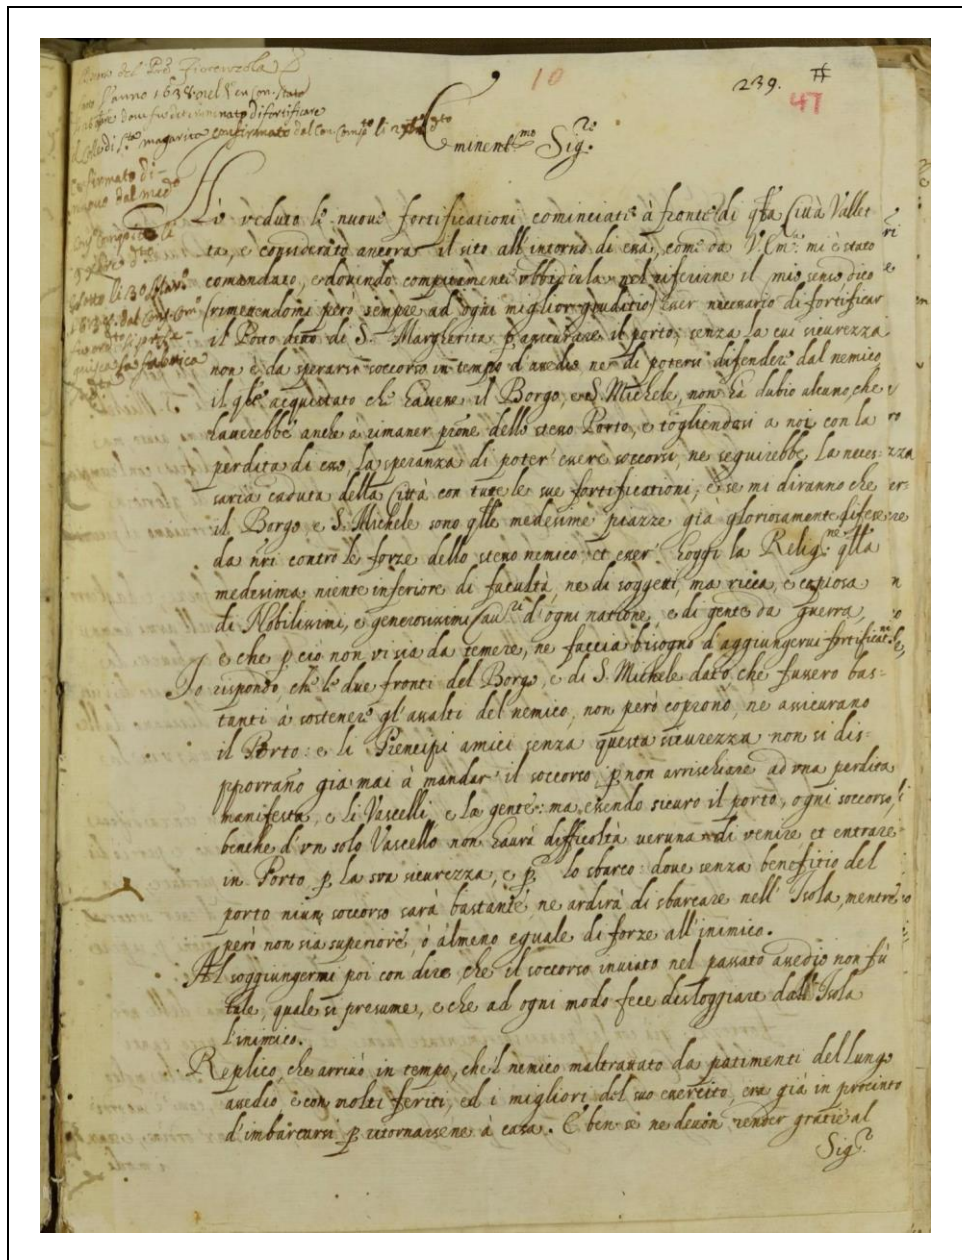 10
239.
47
l'anno 1638 nel Ven. Con. Stato
dove fu determinato di fortificare
di S.ta Margarita confirmato dal Con. Comp.to li
Confirmato di
nuovo dal
Eminent.mo Sig.re
Hò veduto le nuove fortificationi cominciate à fronte di q.sta Città Vallet
ta, e considerato ancora il sito all'intorno di essa, come da V. Em.a mi è stato
comandato, e dovendo compitamente obbidirla nel riferirne il mio senso dico
(rimettendomi però sempre ad ogni miglior giuditio) esser necessario di fortificar
il Posto detto di S.ta Margherita p assicurare il porto; senza la cui sicurezza
non è da sperarsi soccorso in tempo d'assedio ne di potersi difender dal nemico,
il q.le acquistato che havesse il Borgo, e S. Michele, non hà dubio alcuno, che
haverebbe anche à rimaner prone dello stesso Porto, e togliendosi a noi con la
perdita di esso, la speranza di poter essere soccorsi, ne seguirebbe la neces:
saria caduta della Città con tutte le sue fortificationi, e se mi diranno che
il Borgo, e S. Michele sono q.lle medesime piazze già gloriosamente difese
da n.ri contro le forze dello stesso nemico et esser hoggi la Relig.ne q.lla
medesima niente inferiore di facultà, ne di soggetti, ma ricca, e copiosa
di Nobilissimi, e generosissimi Cau.ri d'ogni natione, e di gente da guerra,
e che p ciò non vi sia da temere, ne faccia bisogno d'aggiungervi fortificat.ni
Io rispondo, che le due fronti del Borgo, e di S. Michele dato che fussero bas:
tanti à sostener gl'assalti del nemico, non però coprono, ne assicurano
il Porto: e li Prencipi amici senza questa sicurezza non si dis:
pporrano già mai à mandar il soccorso, p non arrischiare ad una perdita
manifesta, e li Vascelli, e la gente: ma essendo sicuro il porto, ogni soccorso,
benche d'un solo Vascello non haurà difficoltà veruna di venire et entrare
in Porto p la sua sicurezza, e p lo sbarco: dove senza benefitio del
porto niun soccorso sarà bastante ne ardirà di sbarcare nell'Isola, mentre
però non sia superiore, ò almeno eguale di forze all'inimico.
Al soggiungermi poi con dire, che il soccorso inviato nel passato assedio non fù
tale, quale si presume, e che ad ogni modo fece disloggiare dall'Isola
l'inimico.
Replico, che arrivò in tempo, che'l nemico maltrattato da patimenti del lungo
assedio e con molti feriti, ed i migliori del suo esercito, era già in procinto
d'imbarcarsi p ritornarsene à casa. E ben se ne devon render gratie al
Sig.r